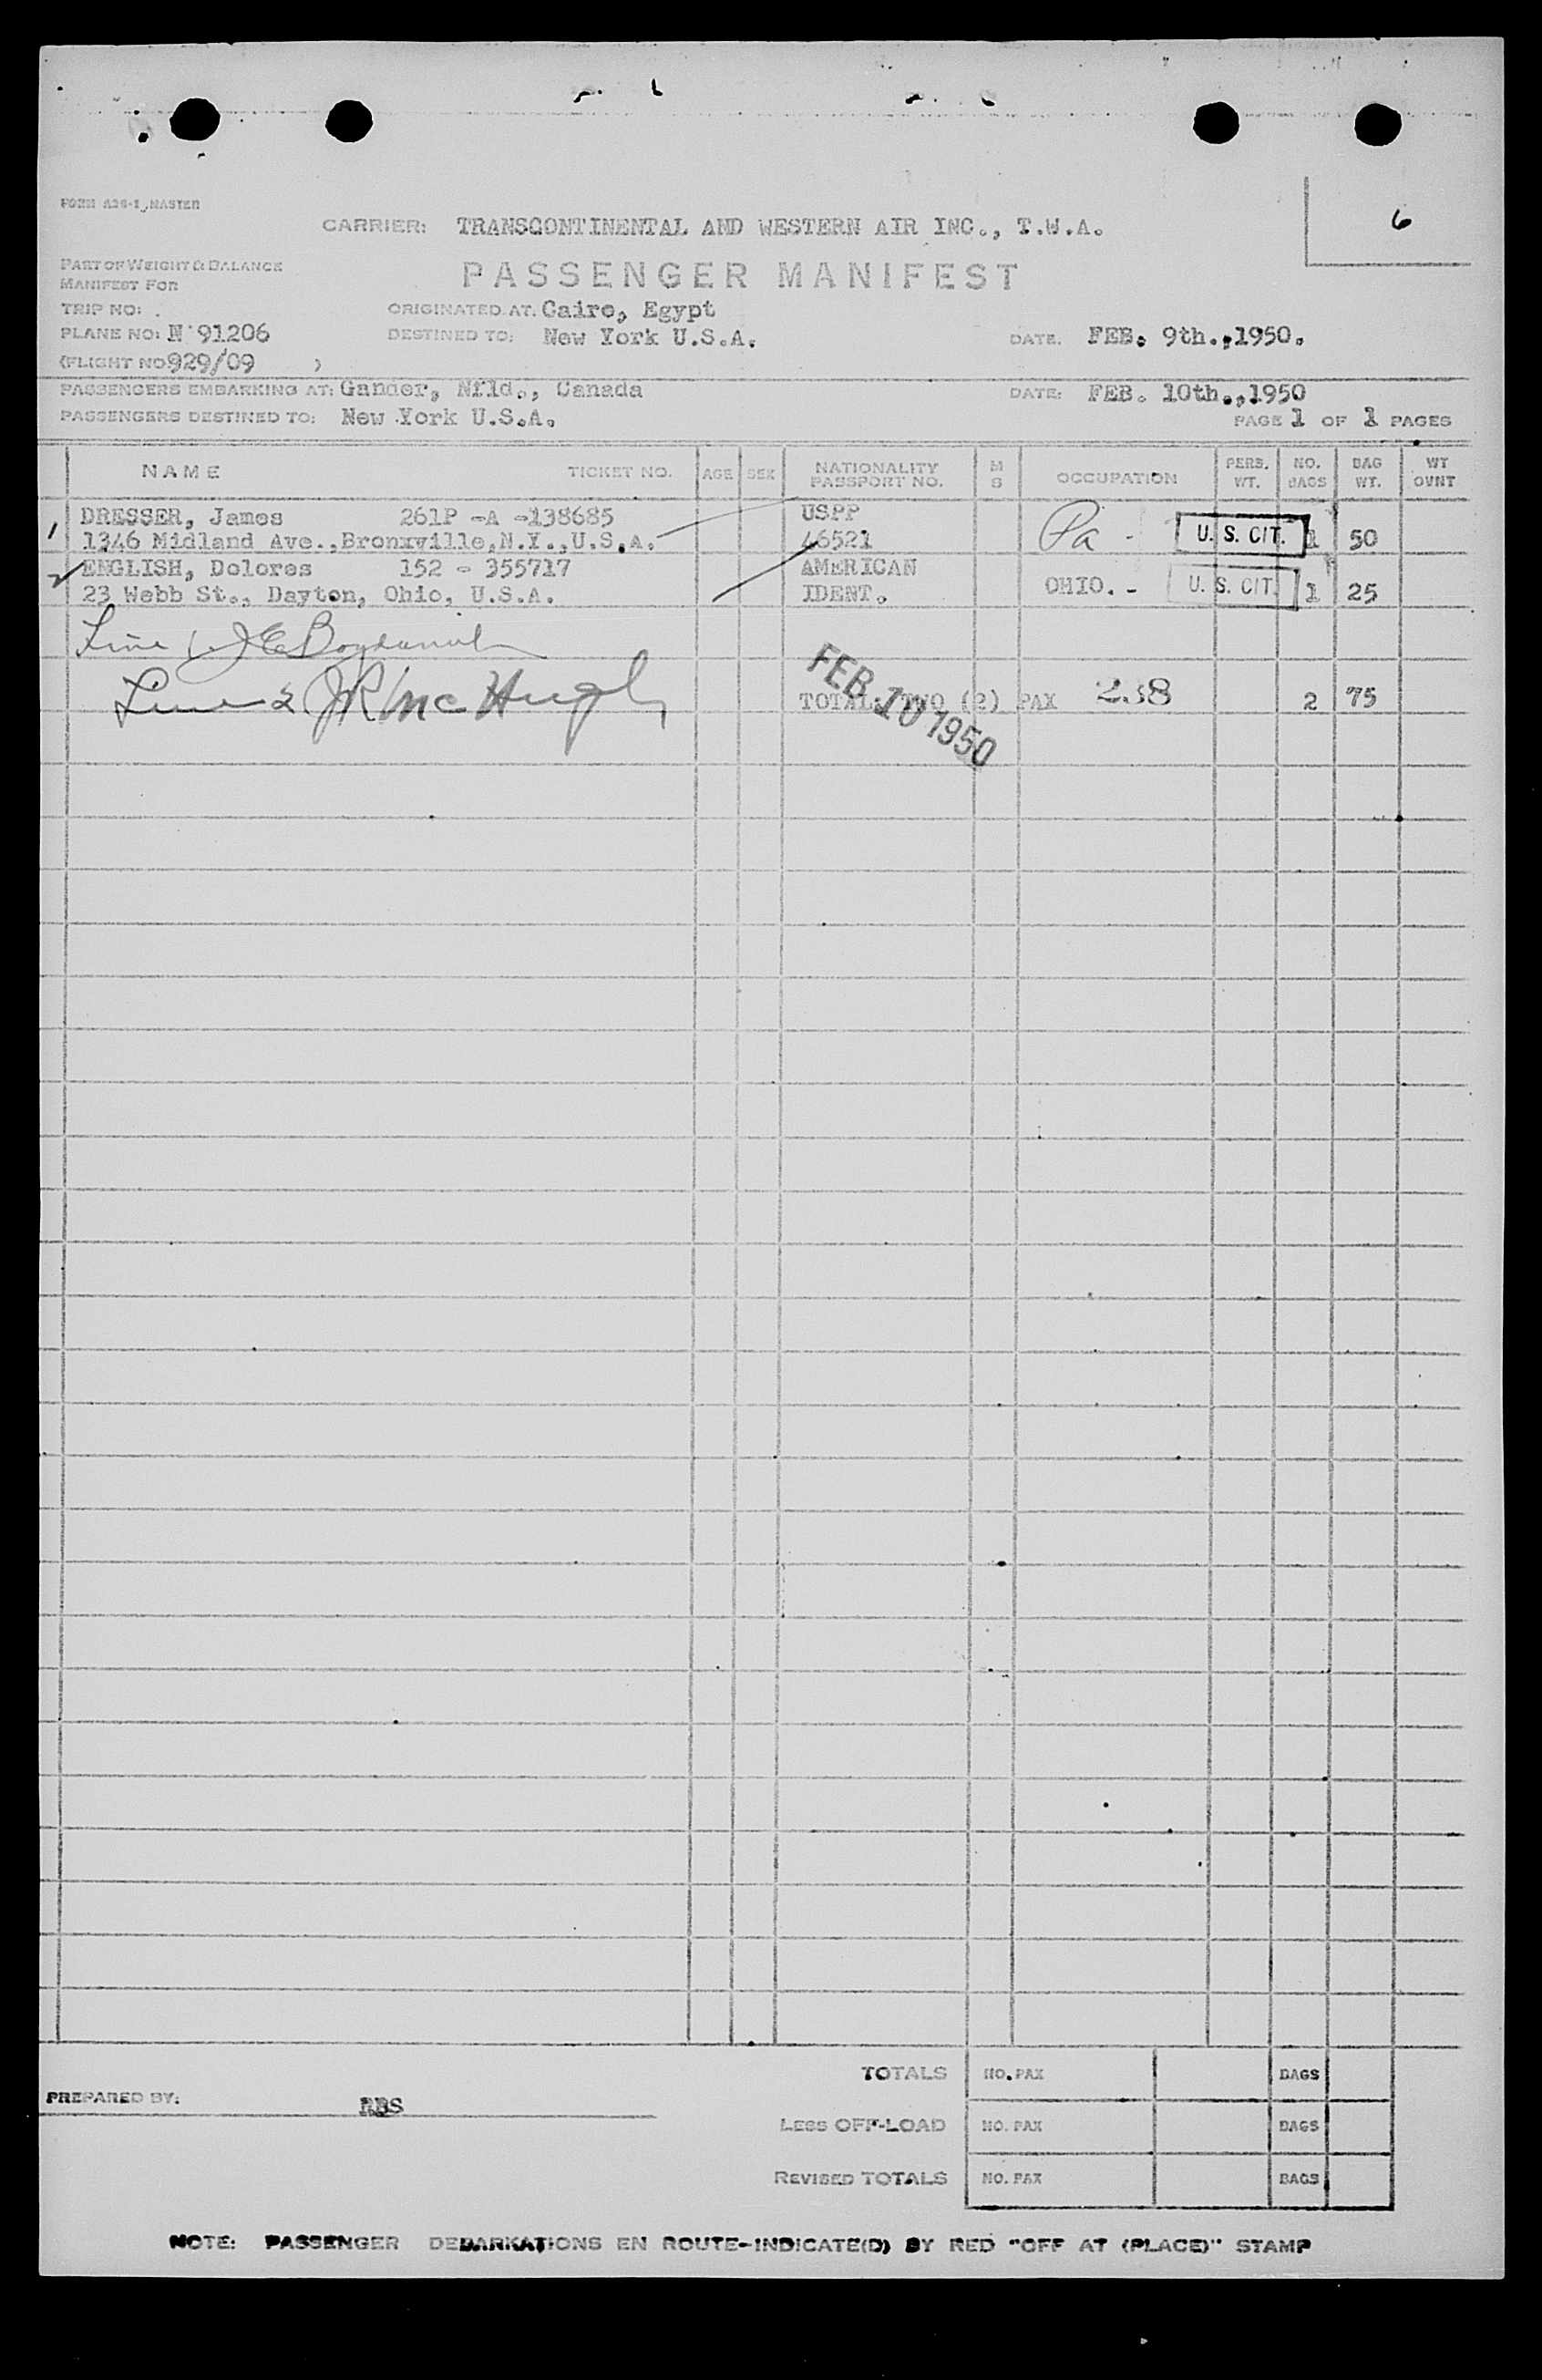 6
FORM A26-1, MASTER
CARRIER: TRANSCONTINENTAL AND WESTERN AIR INC., T.W.A.
PART OF WEIGHT & BALANCE
MANIFEST FOR
PASSENGER MANIFEST
TRIP NO: .
ORIGINATED AT: Cairo, Egypt
PLANE NO: N 91206
DESTINED TO: New York U.S.A.
DATE: FEB. 9th.,1950.
(FLIGHT NO 929/09 )
PASSENGERS EMBARKING AT: Gander, Nfld., Canada
DATE: FEB. 10th.,1950
PASSENGERS DESTINED TO: New York U.S.A.
PAGE 1 OF 1 PAGES
NAME TICKET NO. AGE SEX NATIONALITY PASSPORT NO. M S OCCUPATION PERS. WT. NO. BAGS BAG WT. WT OVNT
DRESSER, James 261P -A -138685 USPP
1 1346 Midland Ave.,Bronxville,N.Y.,U.S.A. 46521 Pa - U. S. CIT. 1 50
2 ENGLISH, Dolores 152 - 355717 AMERICAN
23 Webb St., Dayton, Ohio, U.S.A. IDENT. OHIO. - U. S. CIT. 1 25
Line 1
Line 2 JR McHugh
TOTAL TWO (2) PAX 238 2 75
FEB 10 1950
TOTALS NO. PAX BAGS
PREPARED BY:
LESS OFF-LOAD NO. PAX BAGS
REVISED TOTALS NO. PAX BAGS
NOTE: PASSENGER DEBARKATIONS EN ROUTE-INDICATE(D) BY RED "OFF AT (PLACE)" STAMP